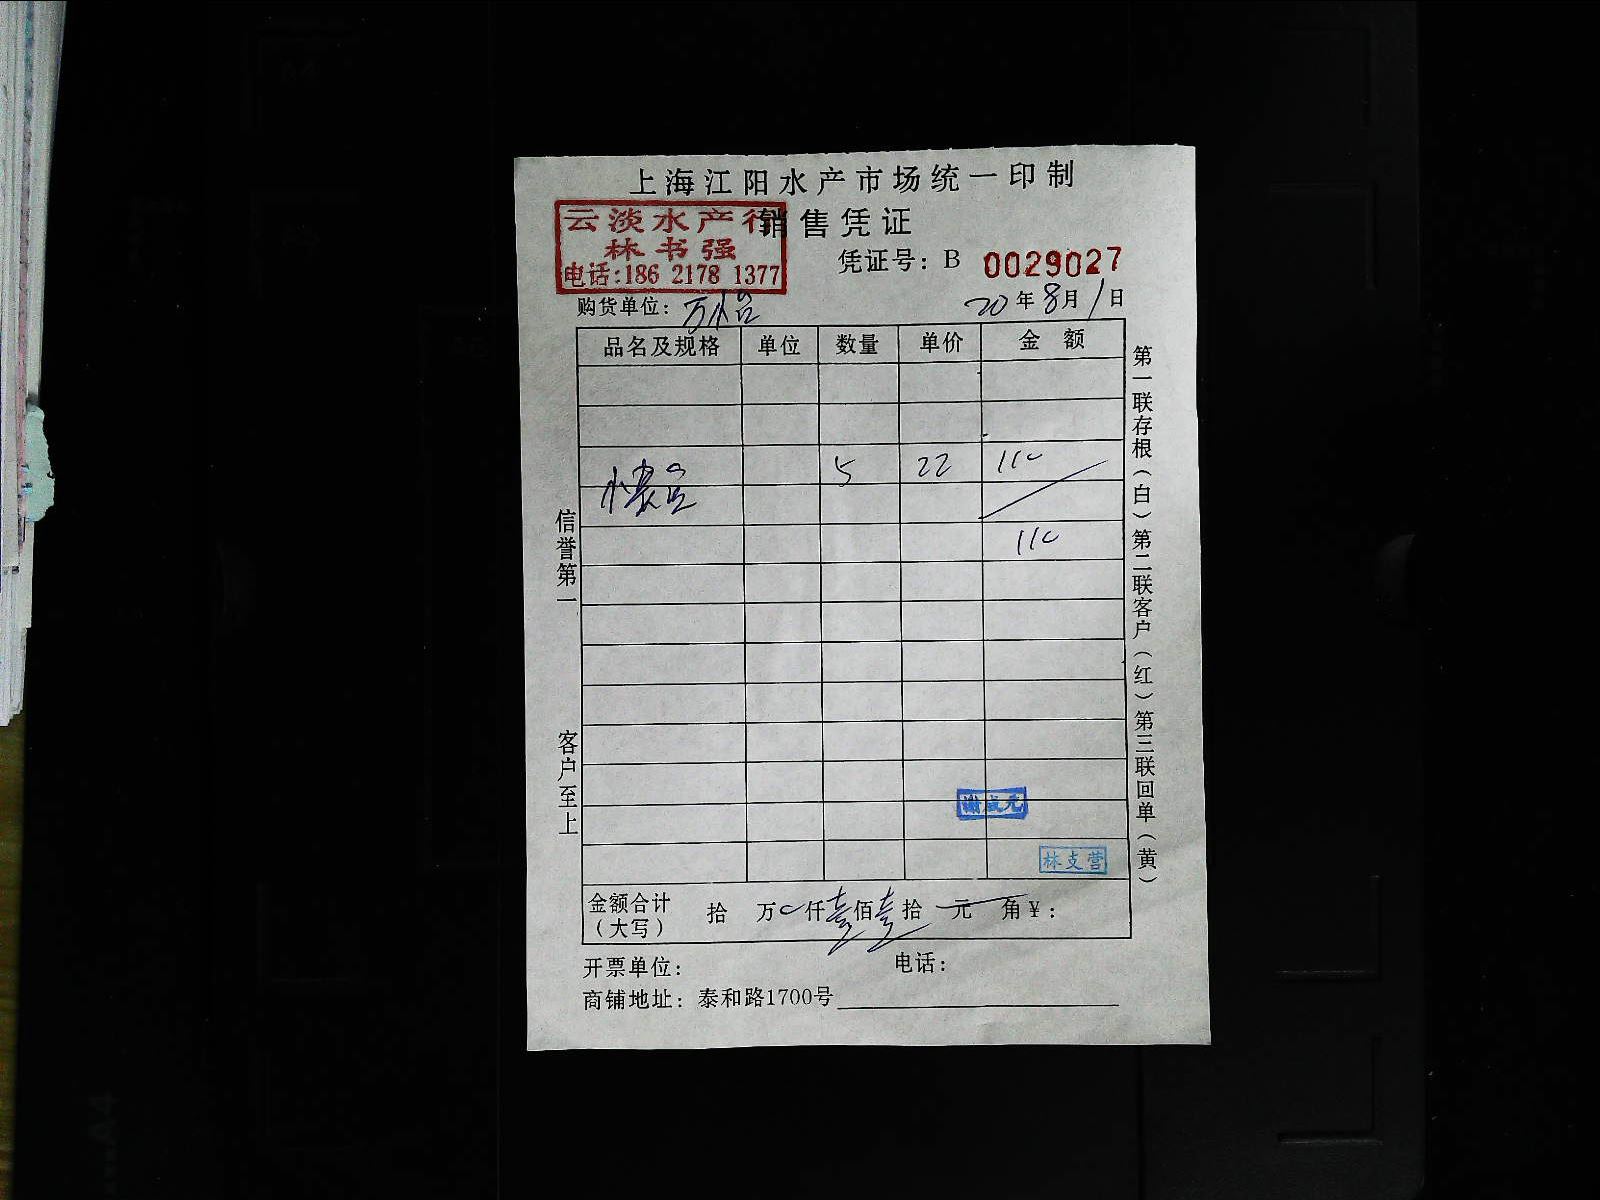 上海江阳水产市场统一印制
销售凭证
云淡水产行
林书强
电话:186 2178 1377
凭证号: B 0029027
购货单位: 万
20年8月1日
品名及规格 单位 数量 单价 金额
5 22 110
110
信誉第一
客户至上
第一联存根(白)第二联客户(红)第三联回单(黄)
林支营
金额合计(大写) 拾 万 0 仟 壹 佰 壹 拾 元 角 ¥:
开票单位: 电话:
商铺地址: 泰和路1700号